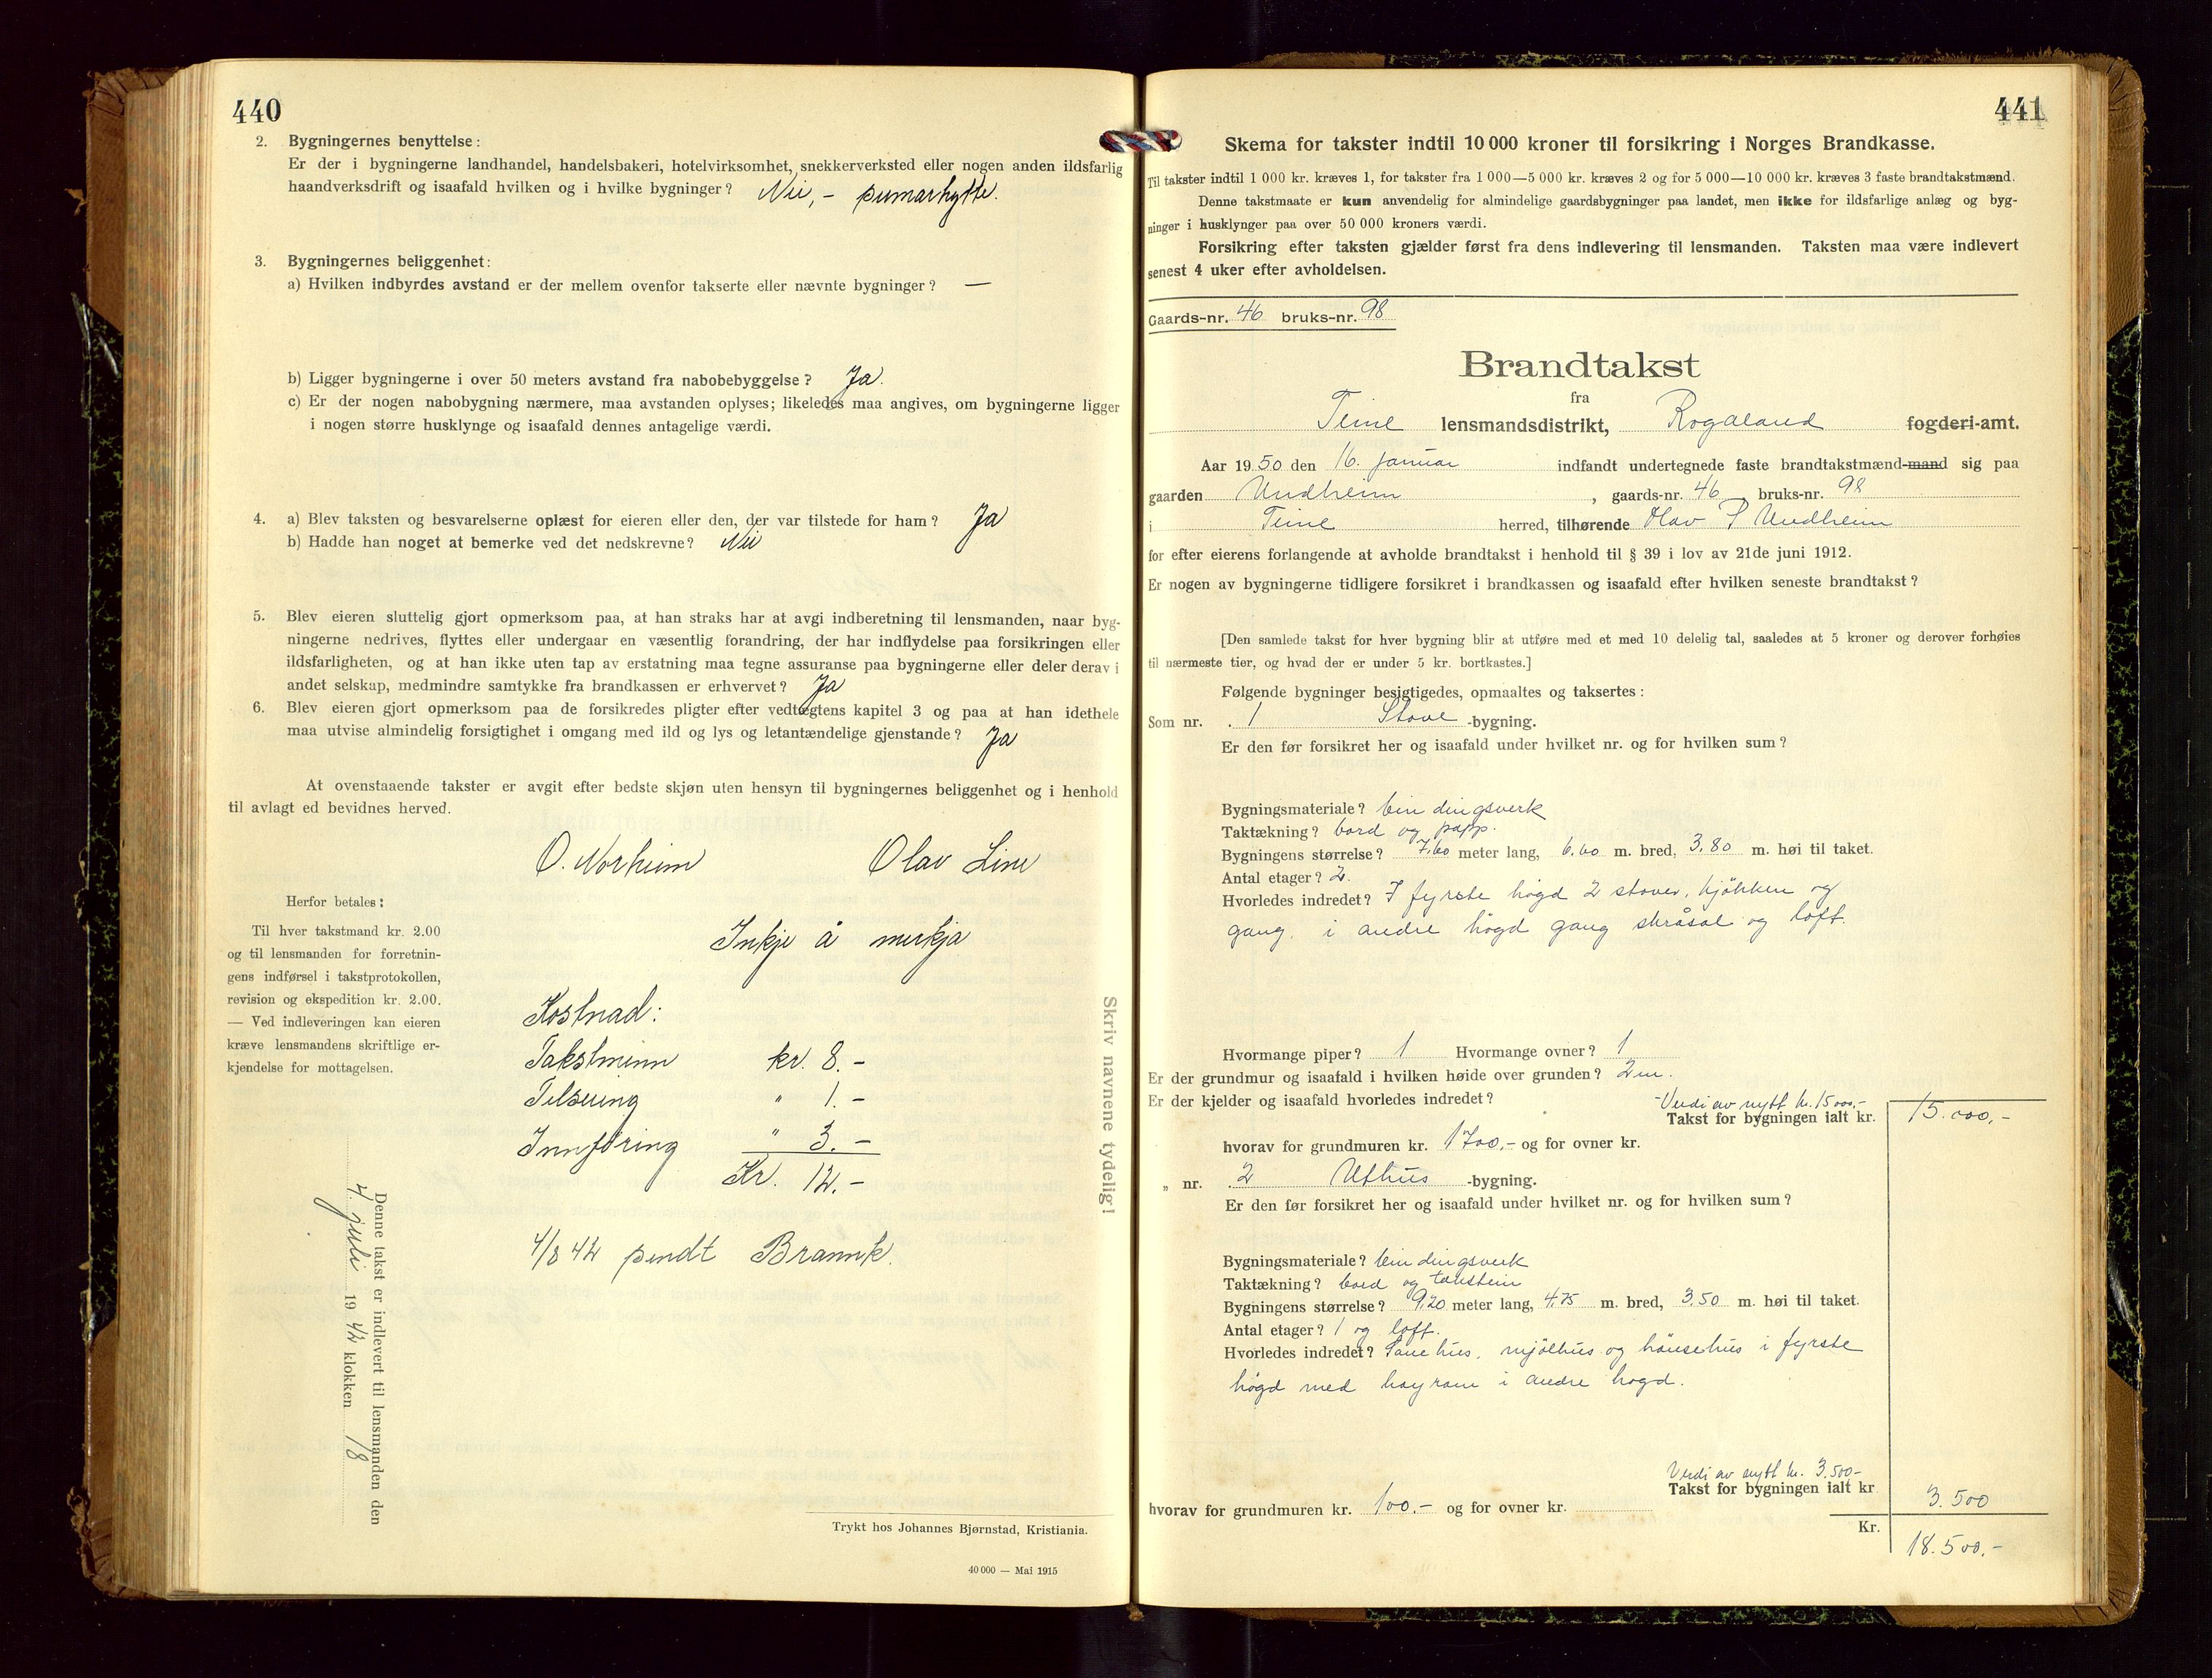 440
2. Bygningernes benyttelse:
Er der i bygningerne landhandel, handelsbakeri, hotelvirksomhet, snekkerverksted eller nogen anden ildsfarlig
haandverksdrift og isaafald hvilken og i hvilke bygninger? Nei, - sumarhytte.
3. Bygningernes beliggenhet:
a) Hvilken indbyrdes avstand er der mellem ovenfor takserte eller nævnte bygninger? —
b) Ligger bygningerne i over 50 meters avstand fra nabobebyggelse? Ja.
c) Er der nogen nabobygning nærmere, maa avstanden oplyses; likeledes maa angives, om bygningerne ligger
i nogen større husklynge og isaafald dennes antagelige værdi.
4. a) Blev taksten og besvarelserne oplæst for eieren eller den, der var tilstede for ham? Ja
b) Hadde han noget at bemerke ved det nedskrevne? Nei
5. Blev eieren sluttelig gjort opmerksom paa, at han straks har at avgi indberetning til lensmanden, naar byg-
ningerne nedrives, flyttes eller undergaar en væsentlig forandring, der har indflydelse paa forsikringen eller
ildsfarligheten, og at han ikke uten tap av erstatning maa tegne assuranse paa bygningerne eller deler derav i
andet selskap, medmindre samtykke fra brandkassen er erhvervet? Ja
6. Blev eieren gjort opmerksom paa de forsikredes pligter efter vedtægtens kapitel 3 og paa at han idethele
maa utvise almindelig forsigtighet i omgang med ild og lys og letantændelige gjenstande? Ja
At ovenstaaende takster er avgit efter bedste skjøn uten hensyn til bygningernes beliggenhet og i henhold
til avlagt ed bevidnes herved.
O. Norheim Olav Line
Herfor betales:
Til hver takstmand kr. 2.00
og til lensmanden for forretnin-
gens indførsel i takstprotokollen,
revision og ekspedition kr. 2.00.
— Ved indleveringen kan eieren
kræve lensmandens skriftlige er-
kjendelse for mottagelsen.
Inkje å merkja
Kostnad:
Takstmenn kr. 8.-
Tilsering " 1.-
Innføring " 3.-
Kr. 12.-
4/8 42 sendt Brannk.
Skriv navnene tydelig!
Denne takst er indlevert til lensmanden den
4. juli 1942 klokken 18
Trykt hos Johannes Bjørnstad, Kristiania.
40 000 — Mai 1915
441
Skema for takster indtil 10 000 kroner til forsikring i Norges Brandkasse.
Til takster indtil 1 000 kr. kræves 1, for takster fra 1 000—5 000 kr. kræves 2 og for 5 000—10 000 kr. kræves 3 faste brandtakstmænd.
Denne takstmaate er kun anvendelig for almindelige gaardsbygninger paa landet, men ikke for ildsfarlige anlæg og byg-
ninger i husklynger paa over 50 000 kroners værdi.
Forsikring efter taksten gjælder først fra dens indlevering til lensmanden. Taksten maa være indlevert
senest 4 uker efter avholdelsen.
Gaards-nr. 46 bruks-nr. 98
Brandtakst
fra
Time lensmandsdistrikt, Rogaland fogderi-amt.
Aar 1950 den 16. januar indfandt undertegnede faste brandtakstmænd-mand sig paa
gaarden Undheim, gaards-nr. 46, bruks-nr. 98
i Time herred, tilhørende Olav S Undheim
for efter eierens forlangende at avholde brandtakst i henhold til § 39 i lov av 21de juni 1912.
Er nogen av bygningerne tidligere forsikret i brandkassen og isaafald efter hvilken seneste brandtakst?
[Den samlede takst for hver bygning blir at utføre med et med 10 delelig tal, saaledes at 5 kroner og derover forhøies
til nærmeste tier, og hvad der er under 5 kr. bortkastes.]
Følgende bygninger besigtigedes, opmaaltes og taksertes:
Som nr. 1 Stove -bygning.
Er den før forsikret her og isaafald under hvilket nr. og for hvilken sum?
Bygningsmateriale? bindingsverk
Taktækning? bord og papp.
Bygningens størrelse? 7,60 meter lang, 6.60 m. bred, 3.80 m. høi til taket.
Antal etager? 2.
Hvorledes indredet? I fyrste høgd 2 stover, kjøkken og
gang. i andre høgd gang skråsal og loft.
Hvormange piper? 1 Hvormange ovner? 1
Er der grundmur og isaafald i hvilken høide over grunden? 2 m.
Er der kjelder og isaafald hvorledes indredet?
Verdi av nytt kr. 15000,-
Takst for bygningen ialt kr. 15.000,-
hvorav for grundmuren kr. 1700,- og for ovner kr.
„ nr. 2 Uthus -bygning.
Er den før forsikret her og isaafald under hvilket nr. og for hvilken sum?
Bygningsmateriale? bindingsverk
Taktækning? bord og taustein
Bygningens størrelse? 9,20 meter lang, 4,75 m. bred, 3.50 m. høi til taket.
Antal etager? 1 og loft.
Hvorledes indredet? Sauehus, mjølhus og hønsehus i fyrste
høgd med høyrom i andre høgd.
Verdi av nytt kr. 3.500-
Takst for bygningen ialt kr. 3.500
hvorav for grundmuren kr. 100.- og for ovner kr.
Kr. 18.500,-